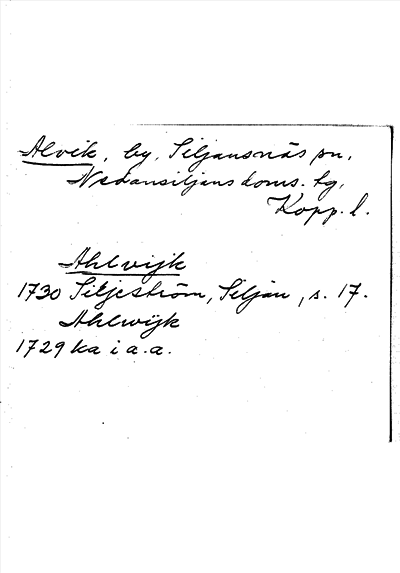 Alvik, by, Siljansnäs sn,
Nedansiljans doms. tg,
Kopp. l.
Ahlvijk
1730 Siljeström, Siljan, s. 17.
Ahlwijk
1729 ka i a.a.